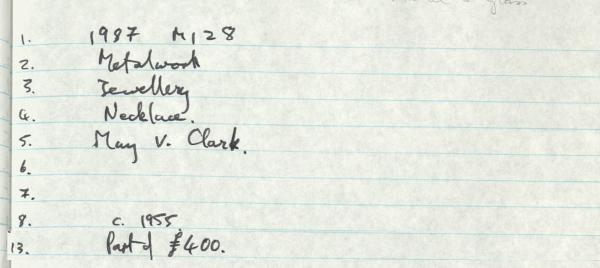 glass
1. 1987 M128
2. Metalwork
3. Jewellery
4. Necklace.
5. May V. Clark.
6.
7.
8. c. 1955.
13. Part of £400.